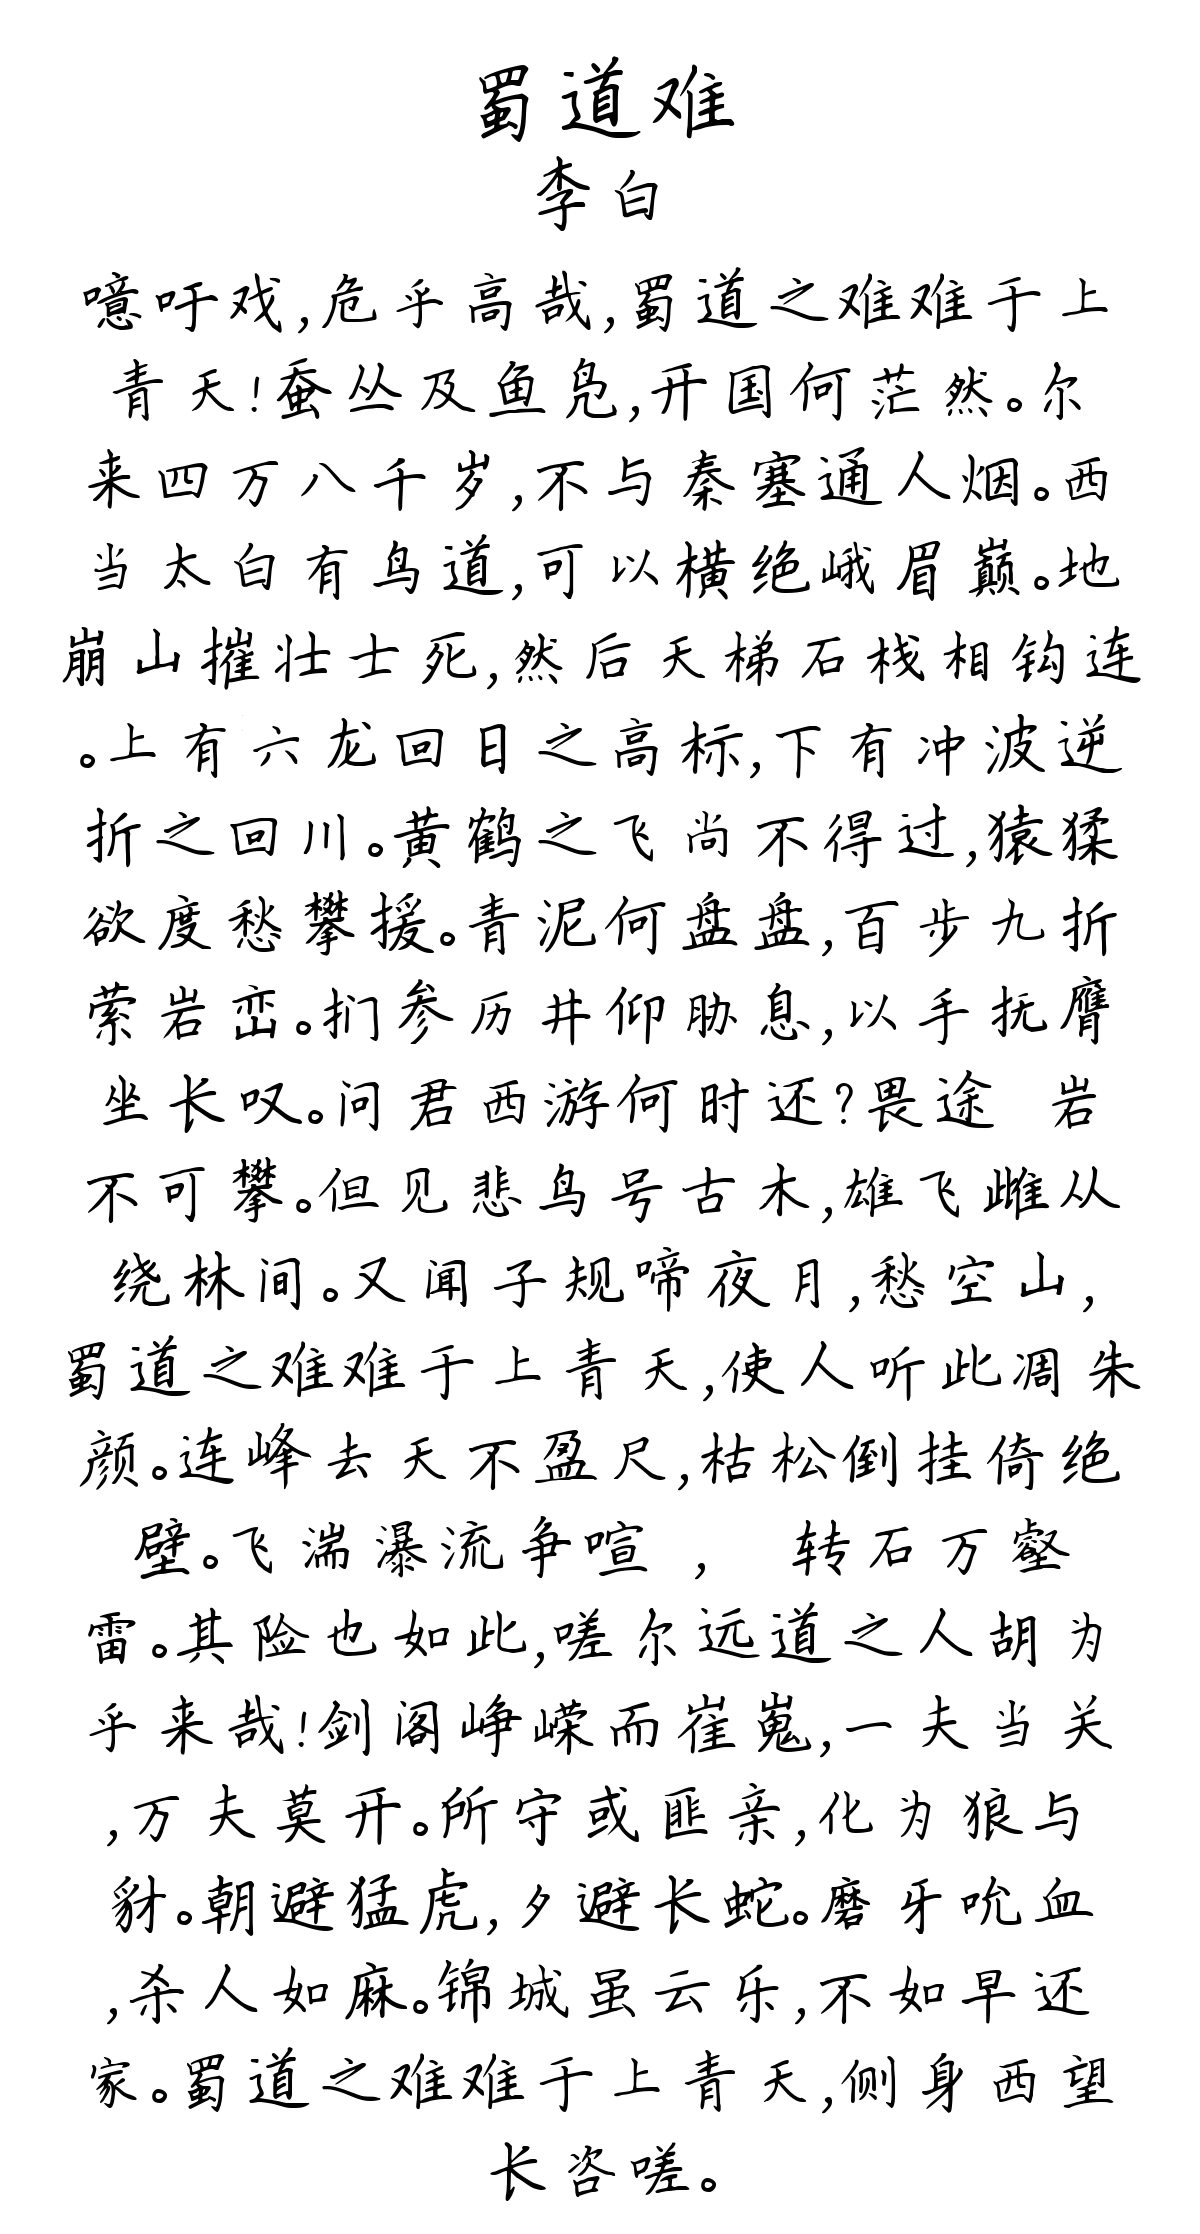 蜀道难
李白
噫吁戏,危乎高哉,蜀道之难难于上
青天!蚕丛及鱼凫,开国何茫然。尔
来四万八千岁,不与秦塞通人烟。西
当太白有鸟道,可以横绝峨眉巅。地
崩山摧壮士死,然后天梯石栈相钩连
。上有六龙回日之高标,下有冲波逆
折之回川。黄鹤之飞尚不得过,猿猱
欲度愁攀援。青泥何盘盘,百步九折
萦岩峦。扪参历井仰胁息,以手抚膺
坐长叹。问君西游何时还?畏途 岩
不可攀。但见悲鸟号古木,雄飞雌从
绕林间。又闻子规啼夜月,愁空山,
蜀道之难难于上青天,使人听此凋朱
颜。连峰去天不盈尺,枯松倒挂倚绝
壁。飞湍瀑流争喧 , 转石万壑
雷。其险也如此,嗟尔远道之人胡为
乎来哉!剑阁峥嵘而崔嵬,一夫当关
,万夫莫开。所守或匪亲,化为狼与
豺。朝避猛虎,夕避长蛇。磨牙吮血
,杀人如麻。锦城虽云乐,不如早还
家。蜀道之难难于上青天,侧身西望
长咨嗟。